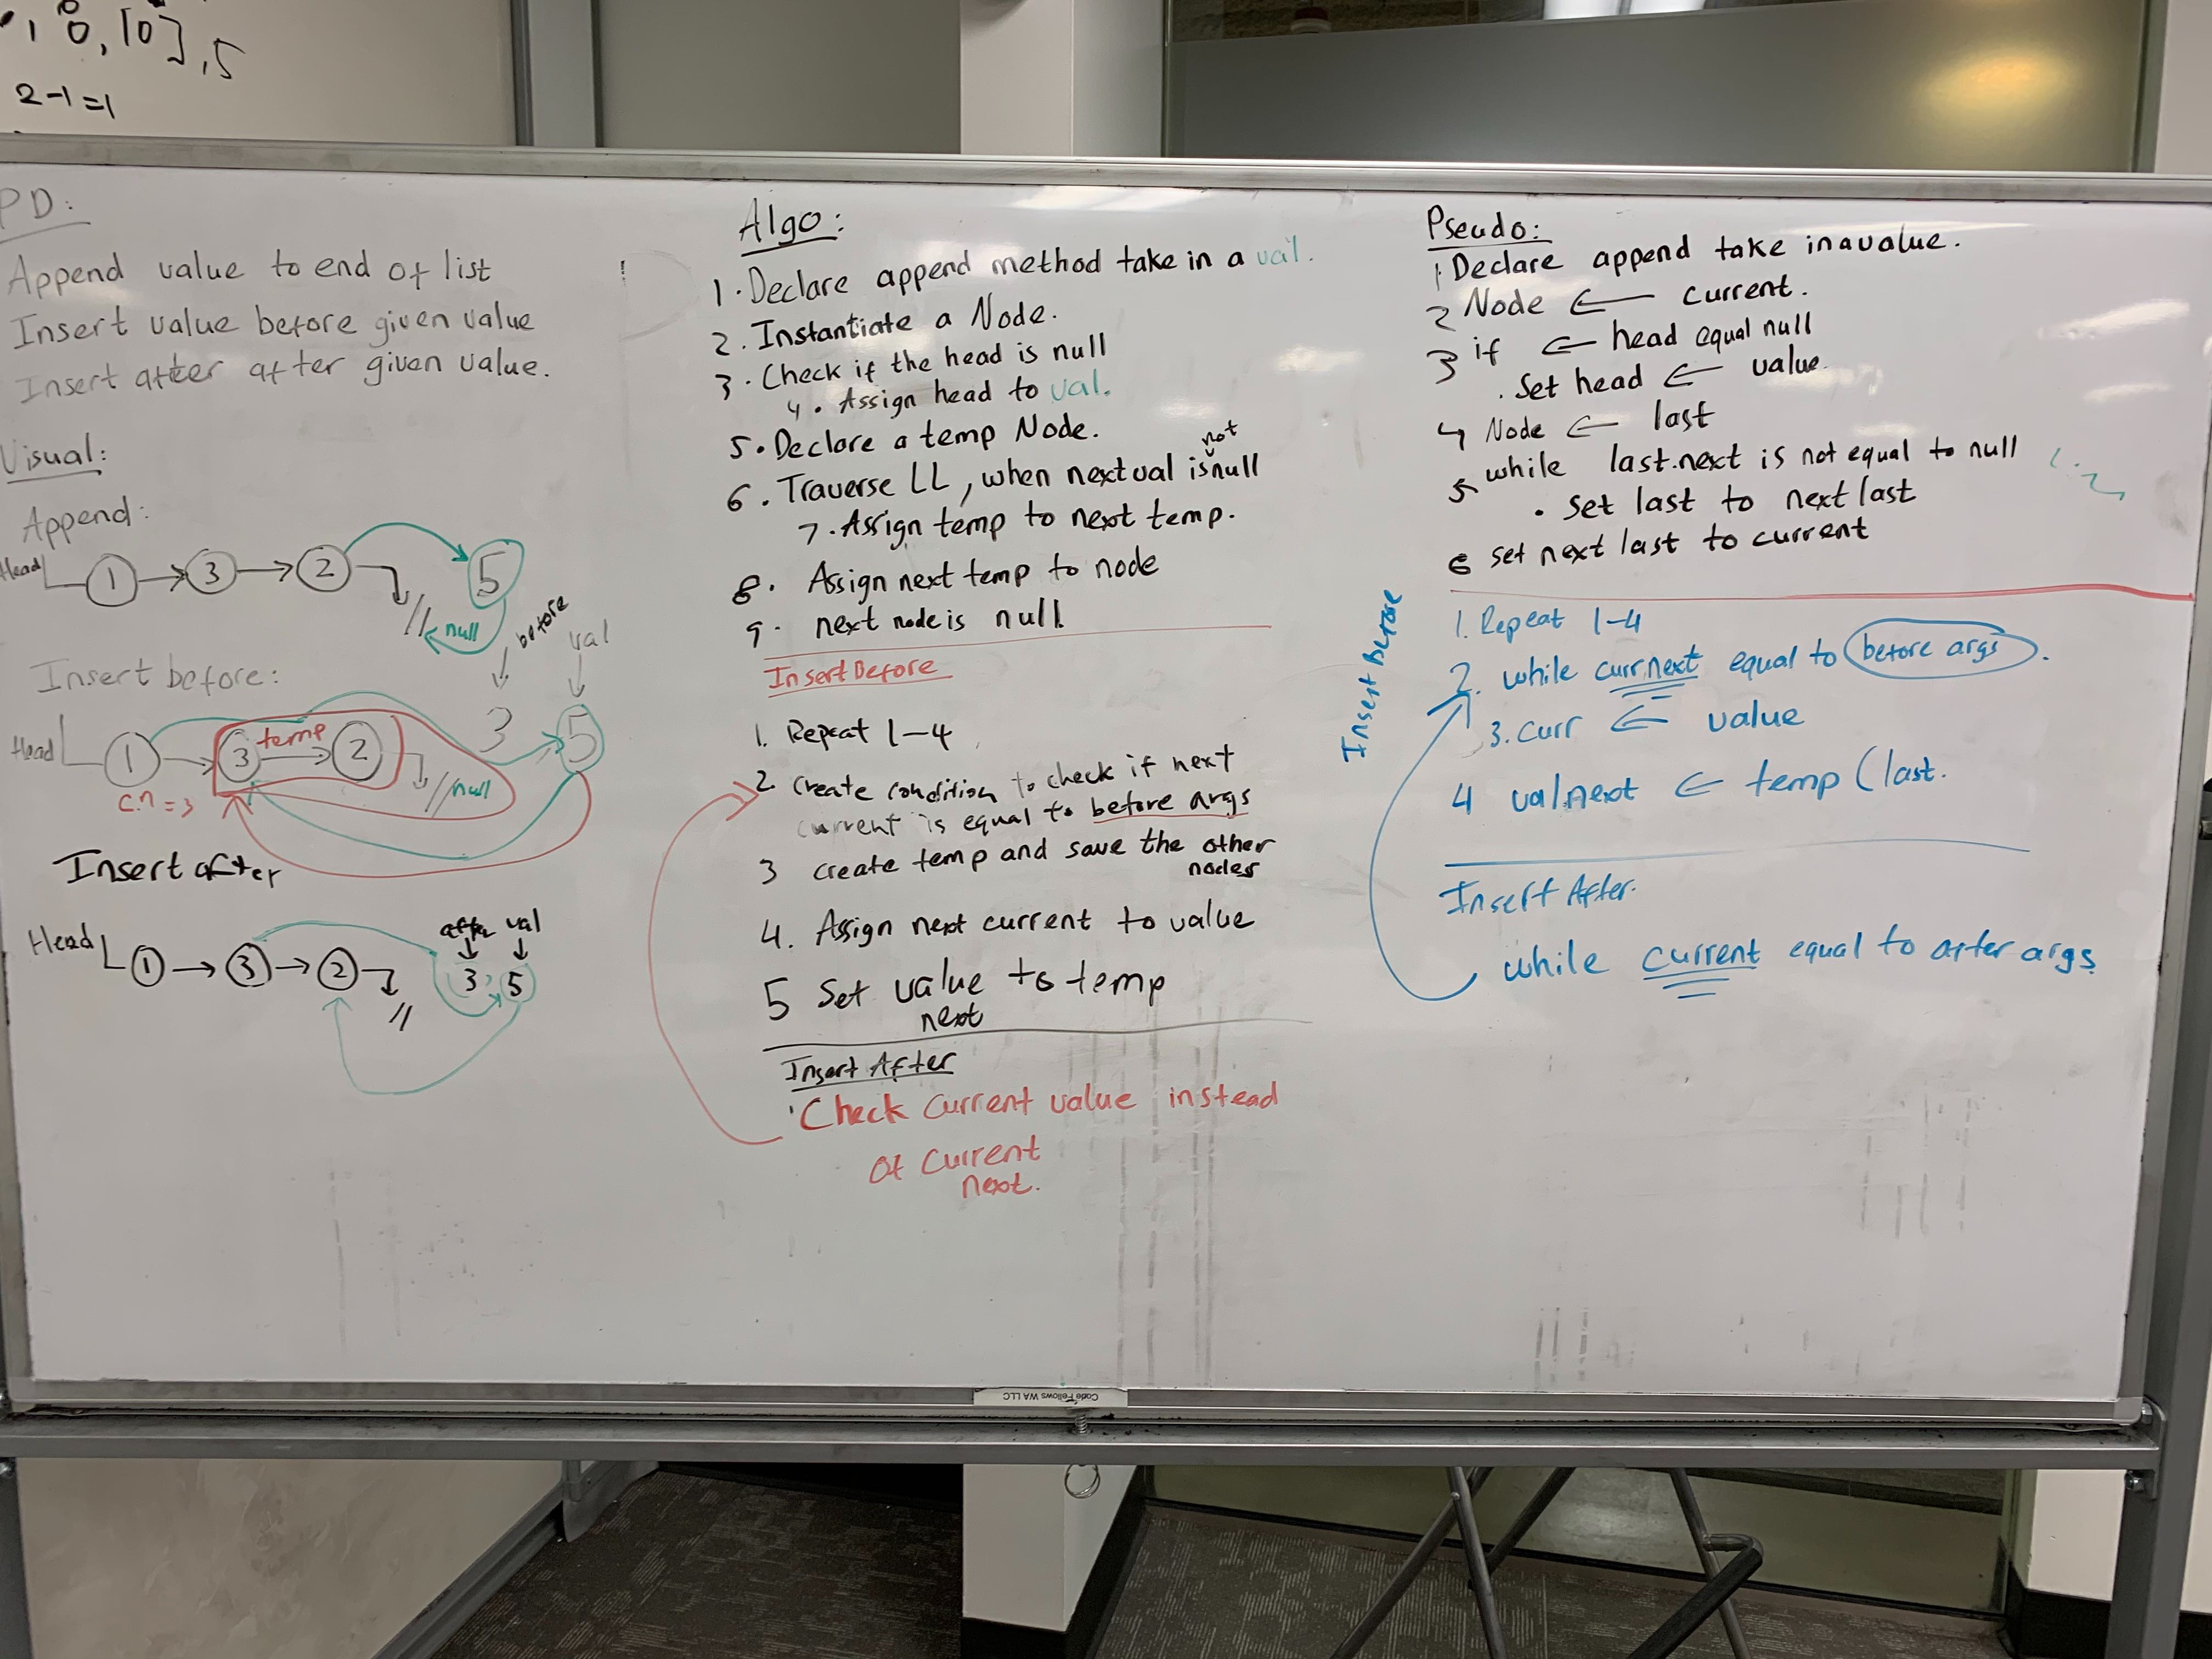 1, 0, [0], 5
2-1=1
PD:
Append value to end of list
Insert value before given value
Insert after after given value.
Visual:
Append:
Head 1 3 2 5
null
Insert before:
before val
3 5
Head 1 3 temp 2
null
c.n = 3
Insert after
after val
Head 1 3 2 3, 5
Algo:
1. Declare append method take in a val.
2. Instantiate a Node.
3. Check if the head is null
4. Assign head to val.
5. Declare a temp Node.
not
6. Traverse LL, when next val is null
7. Assign temp to next temp.
8. Assign next temp to node
9. next node is null
Insert Before
1. Repeat 1-4
2. Create condition to check if next
current is equal to before args
3 create temp and save the other
nodes
4. Assign next current to value
5 Set value to temp
next
Insert After
Check Current value instead
of Current
next.
Pseudo:
1 Declare append take in a value.
2 Node ← current.
3 if ← head equal null
. Set head ← value.
4 Node ← last
5 while last.next is not equal to null
. Set last to next last
6 set next last to current
Insert Before
1. Repeat 1-4
2. while curr.next equal to before args.
3. Curr ← value
4 val.next ← temp (last.
Insert After.
while current equal to after args
Code Fellows WA LLC